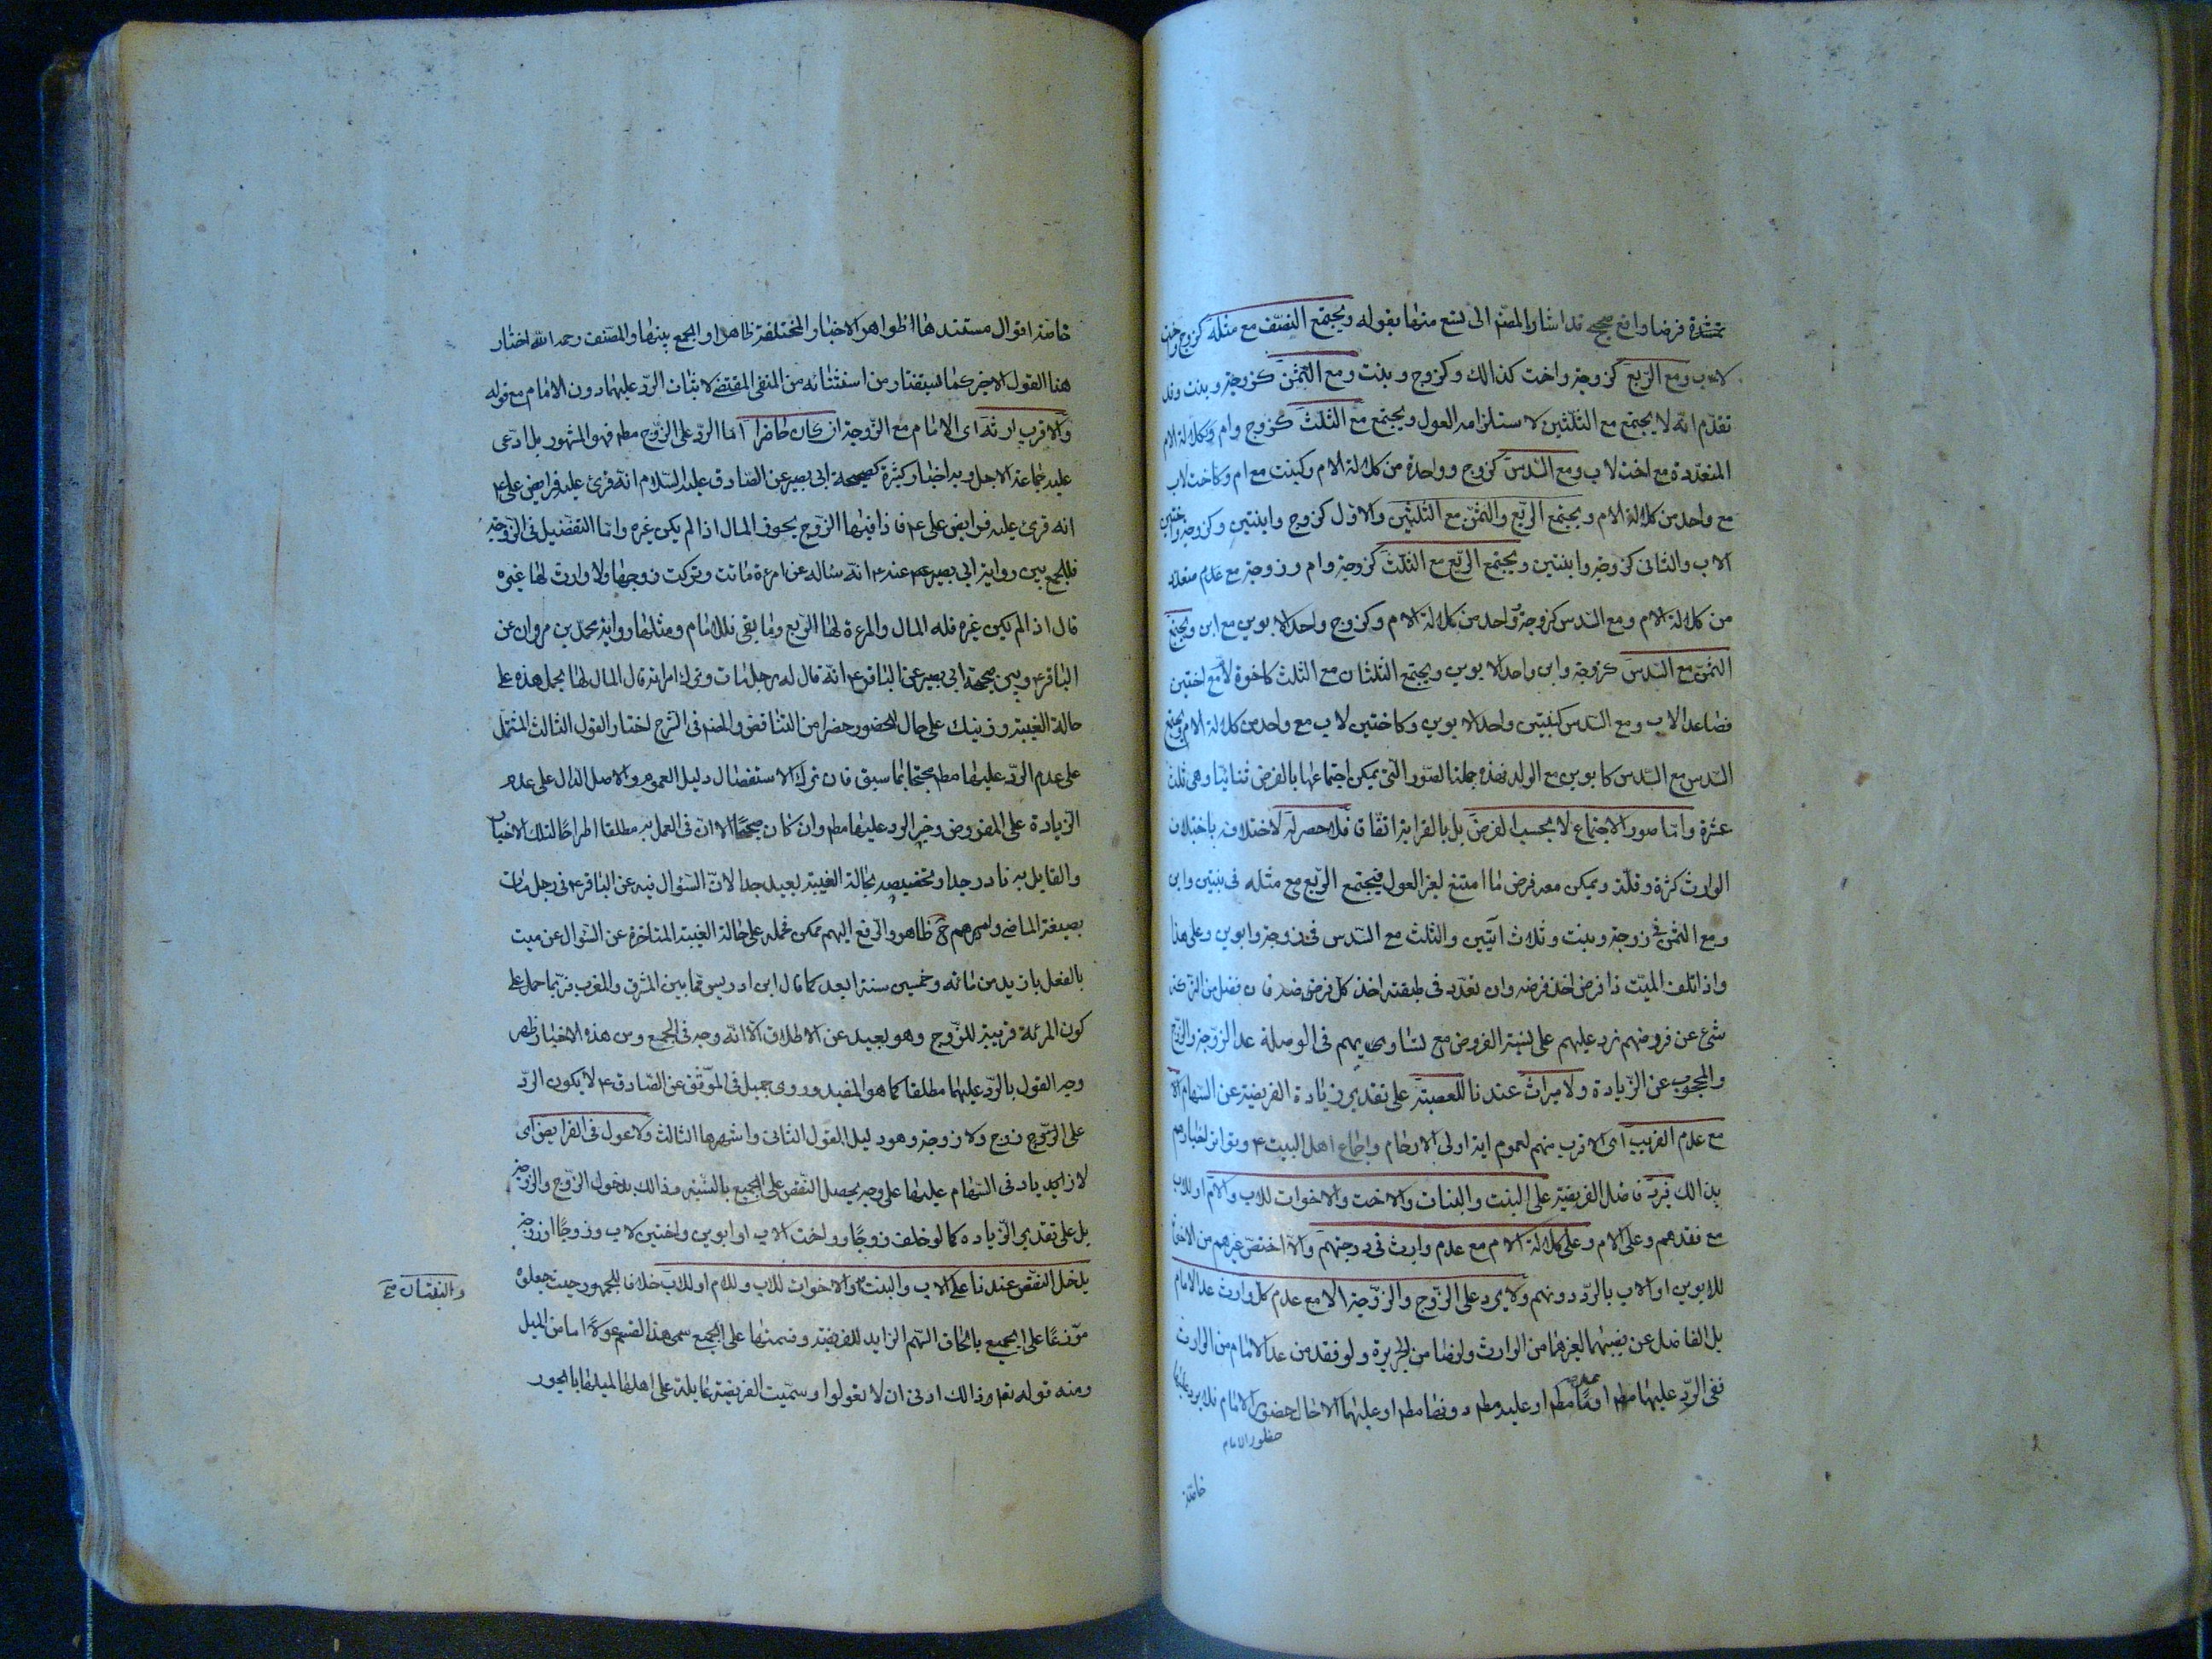 عشرة فرضا واقع صحيح قد اشار المصنف الى تسع منها بقوله ويجتمع النصف مع مثله كزوج واخت
لاب ومع الربع كزوجة واخت كذالك وكزوج وبنت ومع الثمن كزوجة وبنت وقد
تقدم انه لا يجتمع مع الثلثين لاستلزامه العول ويجتمع مع الثلث كزوج وام وككلالة الام
المتعددة مع اخت لاب ومع السدس كزوج وواحدة من كلالة الام وكبنت مع ام وكاخت لاب
مع واحد من كلالة الام ويجتمع الربع والثمن مع الثلثين والاول كزوج وابنتين وكزوجة واختين
الاب والثانى كزوجة وابنتين ويجتمع الربع مع الثلث كزوجة وام وزوجة مع متعدد
من كلالة الام ومع السدس كزوجة وواحد من كلالة الام وكزوج واحد الابوين مع ابن ويجتمع
الثمن مع السدس كزوجة وابن واحد الابوين ويجتمع الثلثان مع الثلث كاخوة لام مع اختين
فصاعدا لاب ومع السدس كبنتين واحد الابوين وكاختين لاب مع واحد من كلالة الام ويجتمع
السدس مع السدس كابوين مع الولد فهذه جملة الصور التى يمكن اجتماعها بالفرض ثنائيا وهى ثلث
عشرة واما صور الاجتماع لا بحسب الفرض بل بالقرابة اتفاقا فلا حصر له لاختلافه باختلاف
الوارث كثرة وقلة ويمكن معه فرض ما امتنع لغير العول فيجتمع الربع مع مثله فى بنتين وابن
ومع الثمن فى زوجة وبنت وثلاث والثلث مع السدس فى زوجة وابوين وعلى هذا
واذا خلف الميت ذا فرض اخذ فرضه وان تعدد فى طبقته اخذ كل فرضه فان فضل من التركة
شئ عن فروضهم يرد عليهم على نسبة الفروض مع تساويهم فى الوصلة عدا الزوجة والزوج
والمحجوب عن الزيادة ولا ميراث عندنا للعصبة على تقدير زيادة الفريضة عن السهام الا
مع عدم القريب اى الاقرب منهم لعموم اية اولى الارحام واجماع اهل البيت ع وتواتر اخبارهم
بذالك فيرد فاضل الفريضة على البنت والبنات والاخت والاخوات للاب والام او للاب
مع فقدهم وعلى الام وعلى كلالة الام مع عدم وارث فى درجتهم والا اختص غيرهم من الاخوة
للابوين او الاب بالرد دونهم ولا يرد على الزوج والزوجة الا مع عدم كل وارث عدا الامام
بل الفاضل عن نصيبهما لغيرهما من الوارث ولو ضامن الجريرة ولو فقد من عدا الامام من الوارث
ففى الرد عليهما مط او مط او عليه مط دونها مط او عليهما الا حال حضور الامام فلا يرد عليها
حضور الامام
خاصة
خاصة اقوال مستندها ظواهر الاخبار المختلفة ظاهرا والجمع بينها والمصنف رحمه الله اختار
هنا القول الاخير كما يستفاد من استثنائه من المنفى المقتضى لاثبات الرد عليهما دون الامام مع قوله
والاقرب ارثه اى الامام مع الزوجة ان كان حاضرا اما الرد على الزوج مط فهو المشهور بل ادعى
عليه جماعة الاجماع وبه اخبار كثيرة كصحيحة ابى بصير عن الصادق عليه السلام انه قرئ عليه فرايض على ع
انه قرئ عليه فرايض على ع فاذا فيها الزوج يحوز المال اذا لم يكن غيره واما التفصيل فى الزوجة
فللجمع بين رواية ابى بصير عنه ع انه سئاله عن امرءة ماتت وتركت زوجها ولا وارث لها غيره
قال اذا لم يكن غيره فله المال والمرءة لها الربع وما بقى فللامام ومثلها رواية محمد بن مروان عن
الباقر ع وبين صحيحة ابى بصير عن الباقر ع انه قال له رجل مات وترك امراته قال المال لها بحمل هذه على
حالة الغيبة وذينك على حال الحضور حذرا من التناقض والمصنف فى الشرح اختار القول الثالث المشتمل
على عدم الرد عليها مط محتجا بما سبق فان ترك الاستفصال دليل العموم والاصل الدال على عدم
الزيادة على المفروض وخبر الرد عليها مط وان كان صحيحا الا ان فى العمل به مطلقا اطراحا لتلك الاخبار
والقايل به نادر جدا وتخصيصه بحالة الغيبة بعيد جدا لان السؤال فيه عن الباقر ع فى رجل مات
بصيغة الماضى وامرهم ح ظاهر والدفع اليهم ممكن فحمله على حالة الغيبة المتاخرة عن السؤال عن ميت
بالفعل بازيد من مائه وخمسين سنة ابعد كما قال ابن ادريس مما بين المشرق والمغرب فربما حمل على
كون المرئة قريبة للزوج وهو بعيد عن الاطلاق الا انه وجه فى الجمع ومن هذه الاخبار ظهر
وجه القول بالرد عليهما مطلقا كما هو المفيد وروى جميل فى الموثق عن الصادق ع لا يكون الرد
على الزوج زوج ولا زوجة وهو دليل القول الثانى واشهرها الثالث ولا عول فى الفرايض اى
لا ازدياد فى السهام عليها على وجه يحصل النقص على الجميع بالنسبة وذالك بدخول الزوج والزوجة
بل على تقدير الزياده كما لو خلف زوجا واخت الاب او ابوين واختين لاب وزوجا او زوجة
يدخل النقص عندنا على الاب والبنت والاخوات للاب وللام او للاب خلافا للجمهور حيث جعلوه
والبنتان صح
موزعا على الجميع بالحاق السهم الزايد للفريضة وقسمتها على الجميع سمى هذا القسم عولا اما من الميل
ومنه قوله تعم وذالك ادنى ان لا تعولوا وسميت الفريضة عايلة على اهلها لميلها بالجور